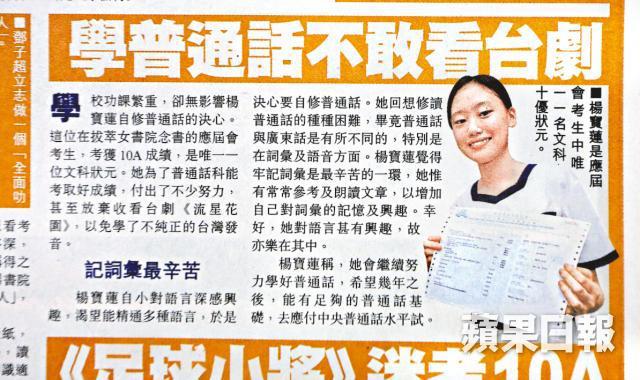 學普通話不敢看台劇
學校功課繁重，卻無影響楊
寶蓮自修普通話的決心。
這位在拔萃女書院念書的應屆會
考生，考獲10A成績，是唯一一
位文科狀元。她為了普通話科能
考取好成績，付出了不少努力，
甚至放棄收看台劇《流星花
園》，以免學了不純正的台灣發
音。
記詞彙最辛苦
楊寶蓮自小對語言深感興
趣，渴望能精通多種語言，於是
決心要自修普通話。她回想修讀
普通話的種種困難，畢竟普通話
與廣東話是有所不同的，特別是
在詞彙及語音方面。楊寶蓮覺得
牢記詞彙是最辛苦的一環，她惟
有常常參考及朗讀文章，以增加
自己對詞彙的記憶及興趣。幸
好，她對語言甚有興趣，故
亦樂在其中。
楊寶蓮稱，她會繼續努
力學好普通話，希望幾年之
後，能有足夠的普通話基
礎，去應付中央普通話水平試。
■楊寶蓮是應屆
會考生中唯
一一名文科
十優狀元。
■鄧子超立志做一個「全面叻
人」
蘋果日報
《足球小將》迷考10A